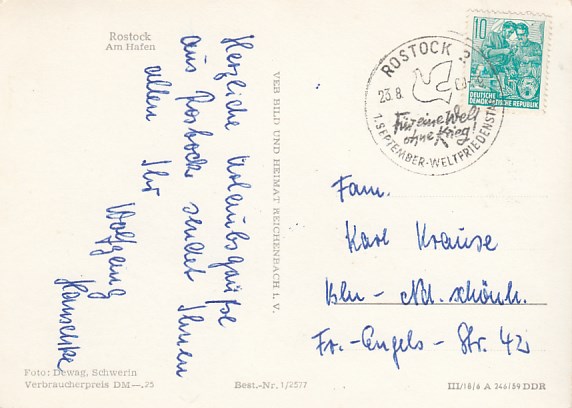 Rostock
Am Hafen
Herzliche Urlaubsgrüße
aus Rostock sendet Ihnen
allen Ihr
Wolfgang
VEB BILD UND HEIMAT REICHENBACH I. V.
ROSTOCK 2
23.8.
Für eine Welt
ohne Krieg!
1. SEPTEMBER-WELTFRIEDENSTAG
10
DEUTSCHE
DEMOKRATISCHE REPUBLIK
Fam.
Karl Krause
Bln - Nd. schönh.
Fr.-Engels - Str. 42
Foto: Dewag, Schwerin
Verbraucherpreis DM —.25
Best.-Nr. 1/2577
III/18/6 A 246/59 DDR